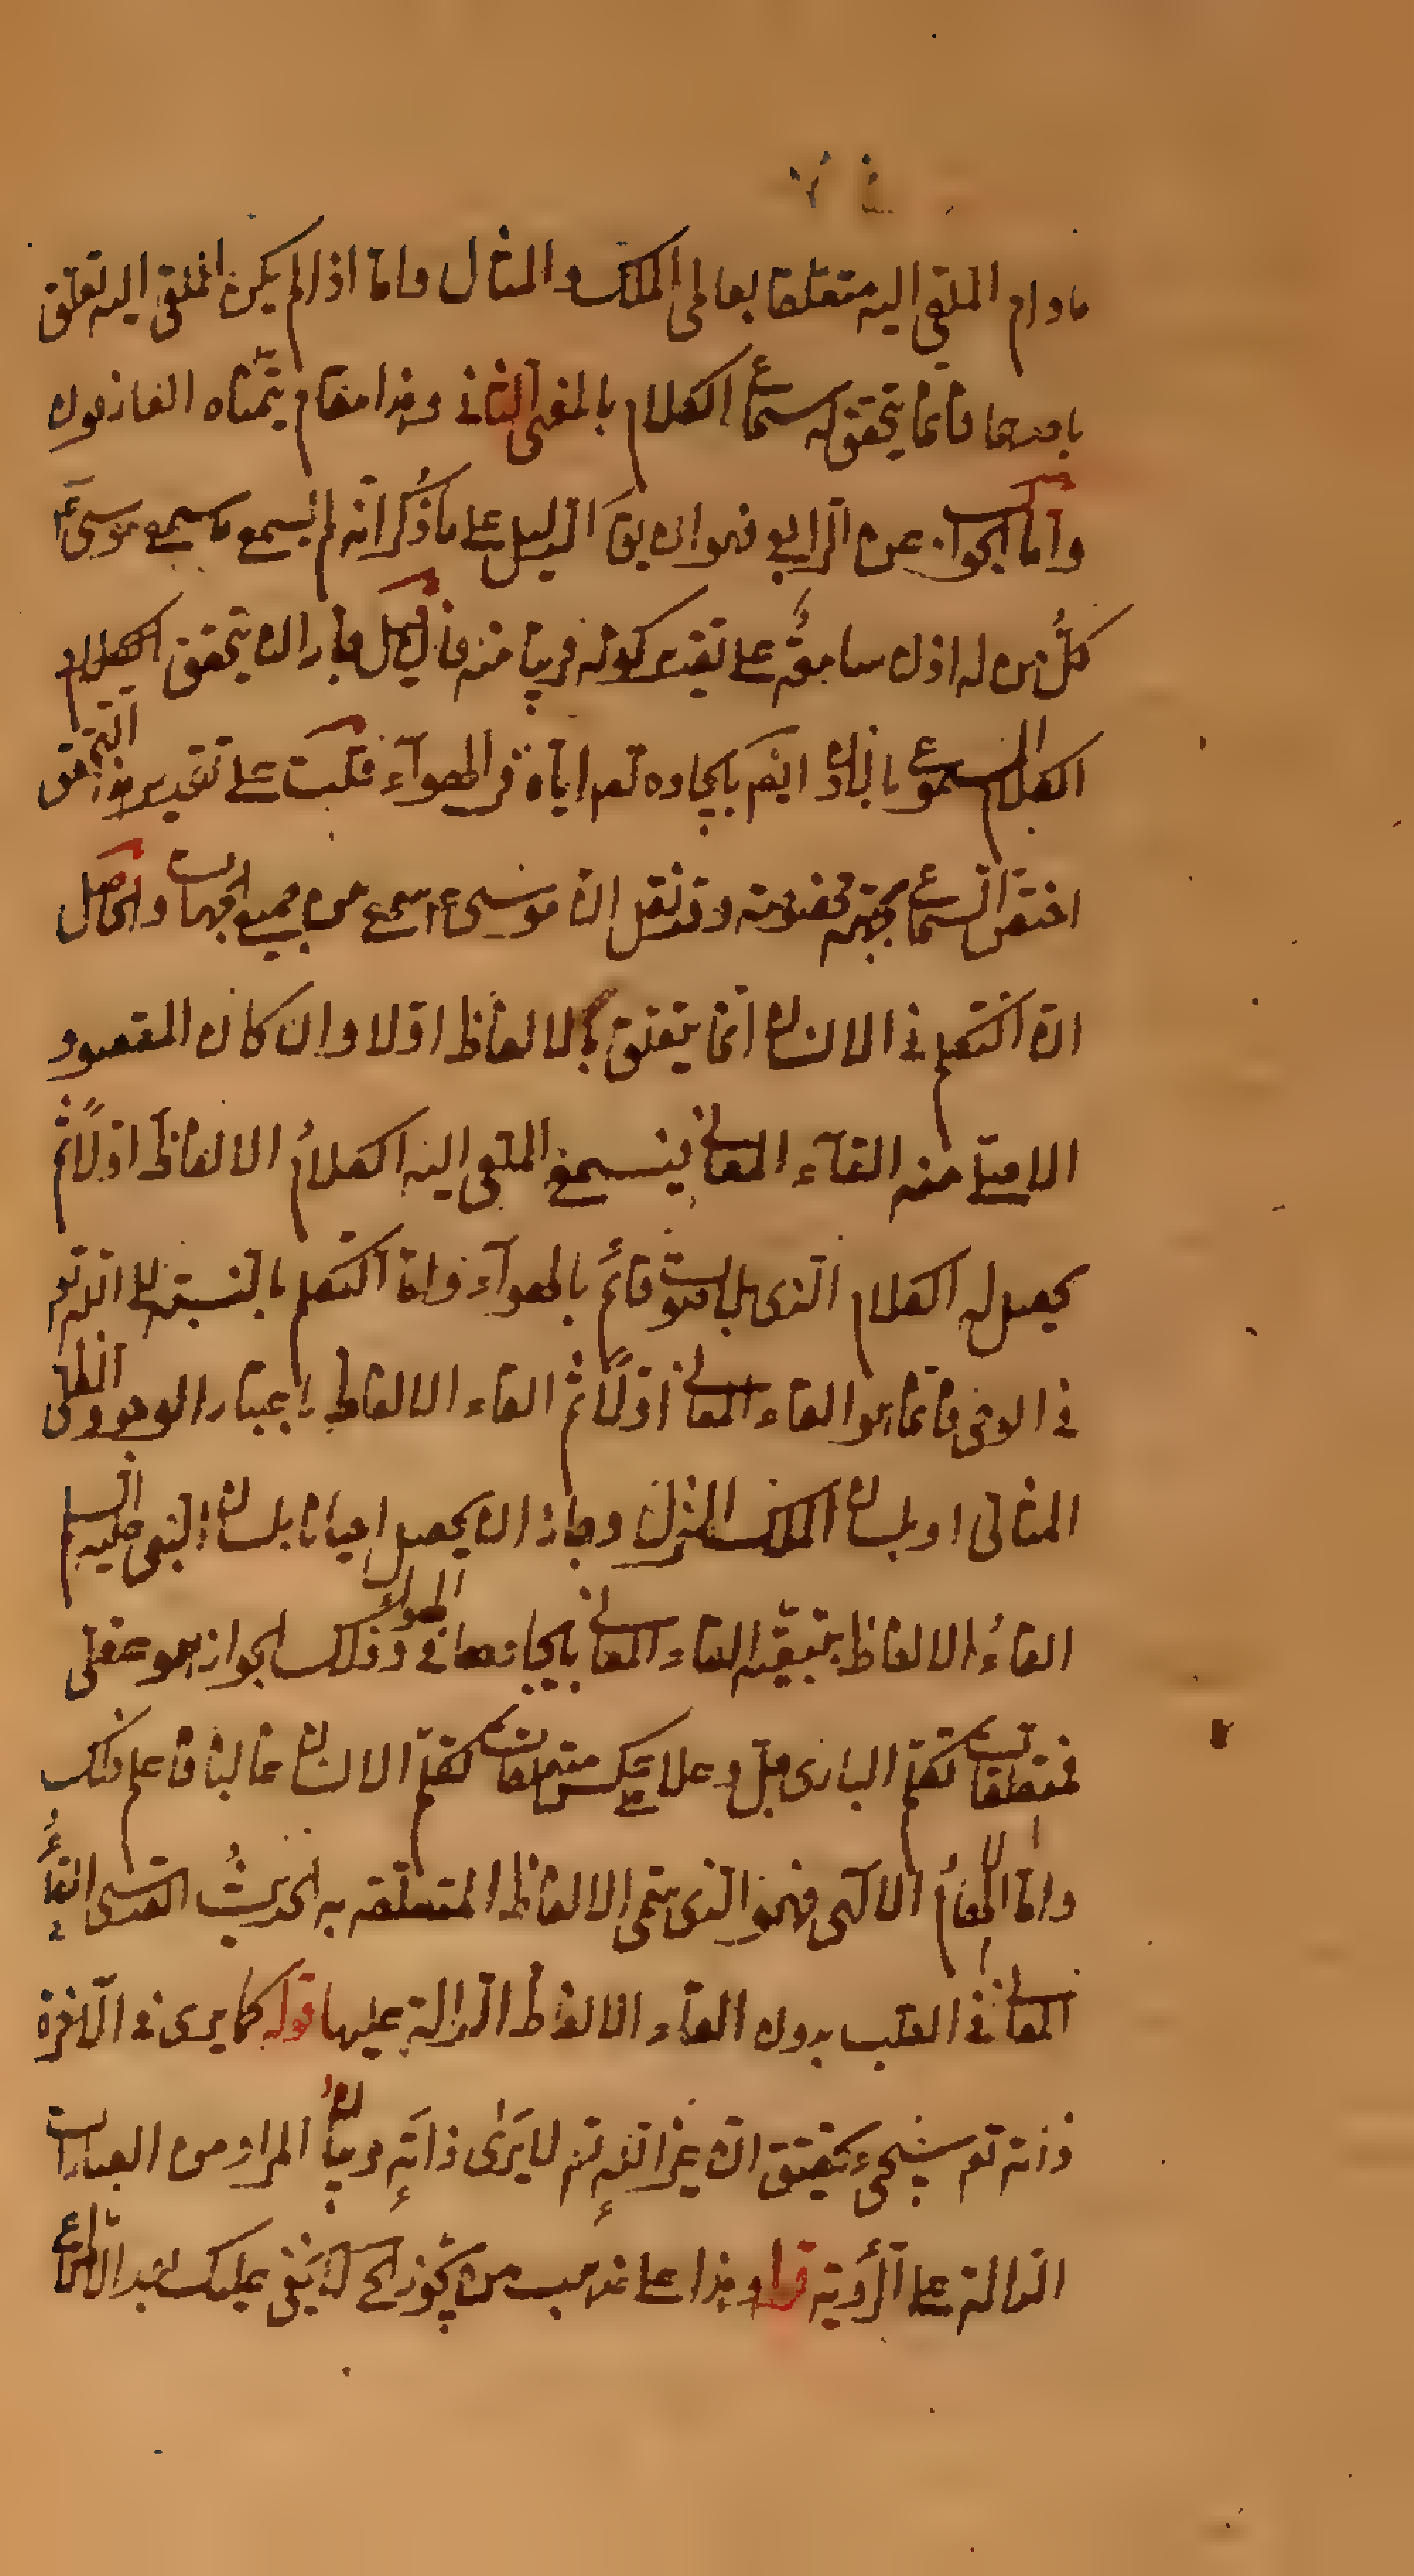 مادام الملقى اليه متعلقا بعالمى الملك والمثال واما اذا لم يكن للملقى اليه تعلق
باحدهما فانما يتحقق له سماع الكلام بالمعنى الثانى وهذا مقام يتمناه العارفون
واما الجواب عن الرابع فهو ان يق الدليل على ما ذكر انه لم يسمع ما سمع موسى ع
كل من له اذن سامعة على تقدير كونه قريبا منه فان قيل جاز ان يتحقق الكلام
الكلام المسموع بالاذن ايضم بايجاده تعم اياه فى الهواء قلت على تقدير هذا التحقق
اختص السماع بجهة مخصوصة وقد نقل ان موسى ع م سمع من جميع الجهات والحاصل
ان التكلم فى الانسان انما يتعلق بالالفاظ اولا وان كان المقصود
الاصلى منه القاء المعانى فيسمع الملقى اليه الكلام الالفاظ اولا ثم
يحصل له الكلام الذى بلا صوت قائم بالهواء واما التكلم بالنسبة الى الله تع
فى الوحى فانما هو القاء المعانى اولا ثم القاء الالفاظ باعتبار الوجود الظلى
المثالى او بلسان الملك المنزل وجاز ان يحصل احيانا بلسان النبى عليه السلم
القاء الالفاظ بتبعية القاء المعانى بايجادها فى الهواء وذلك الجواز هو عقلى
فمتعلقات تكلم البارى جل وعلا على عكس متعلقات تكلم الانسان غالبا فاعلم ذلك
واما الالهام الالهى فهو الذى يسمى الالفاظ المتعلقة به الحديث القدسى القاء
المعانى فى القلب بدون القاء الالفاظ الدالة عليها قوله كما يرى فى الآخرة
ذاته تع سيجىء تحقيق ان غير الله تع لا يرى ذاته وبيان المراد من العبارات
الدالة على الرؤية قوله وهذا على مذهب من يجوز الخ لا يخفى عليك بعد الاطلاع